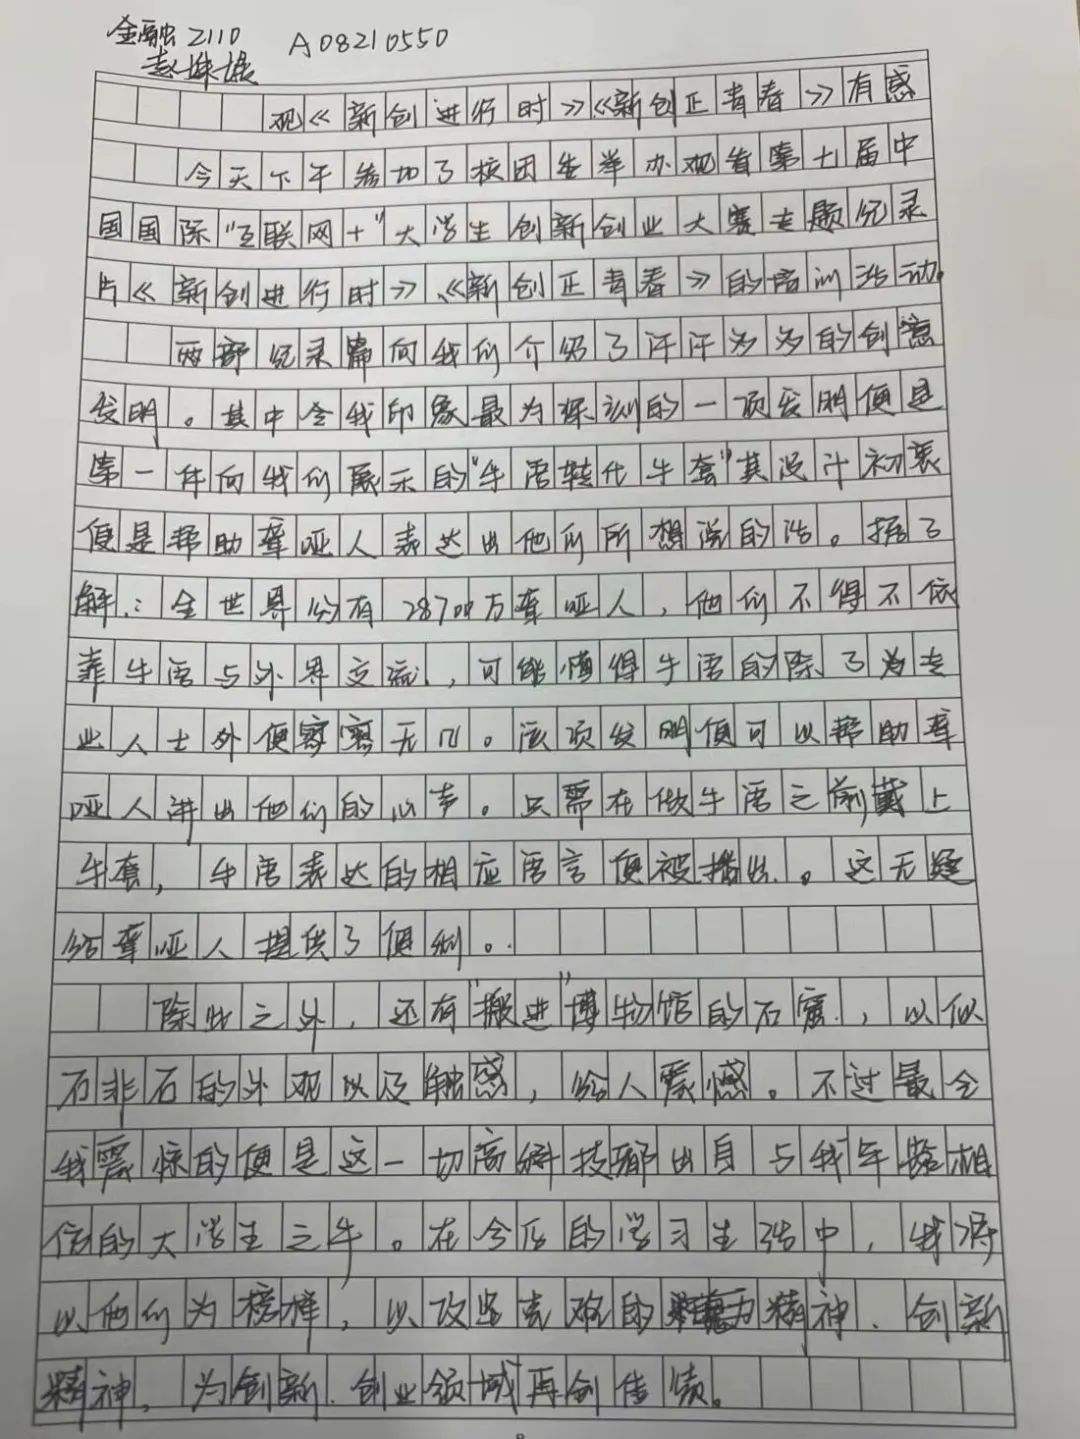 金融2110 A08210550
观《新创进行时》《新创正青春》有感
今天下午参加了校团委举办观看第七届中
国国际“互联网+”大学生创新创业大赛专题纪录
片《新创进行时》、《新创正青春》的培训活动。
两部纪录篇向我们介绍了许许多多的创意
发明。其中令我印象最为深刻的一项发明便是
第一件向我们展示的“手语转化手套”其设计初衷
便是帮助聋哑人表达出他们所想说的话。据了
解：全世界约有28700万聋哑人，他们不得不依
靠手语与外界交流，可能懂得手语的除了为专
业人士外便寥寥无几。该项发明便可以帮助聋
哑人讲出他们的心声。只需在做手语之前戴上
手套，手语表达的相应语言便被播出。这无疑
给聋哑人提供了便利。
除此之外，还有“搬进”博物馆的石窟，以似
石非石的外观以及触感，给人震撼。不过最令
我震惊的便是这一切高科技都出自与我年龄相
仿的大学生之手。在今后的学习生活中，我将
以他们为榜样，以攻坚克难的精神、创新
精神，为创新、创业领域再创佳绩。